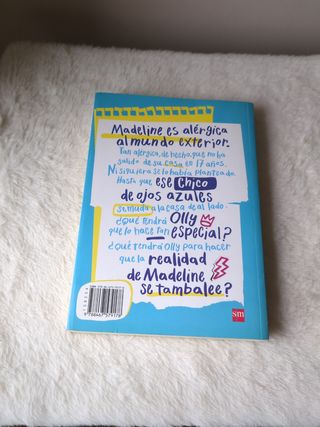 Madeline es alérgica
al mundo exterior.
Tan alérgica, de hecho, que no ha
salido de su casa en 17 años.
Ni siquiera se lo había planteado.
Hasta que ese chico
de ojos azules
se muda a la casa de al lado.
¿Qué tendrá Olly
que lo hace tan especial?
¿Qué tendrá Olly para hacer
que la realidad
de Madeline
se tambalee?
sm